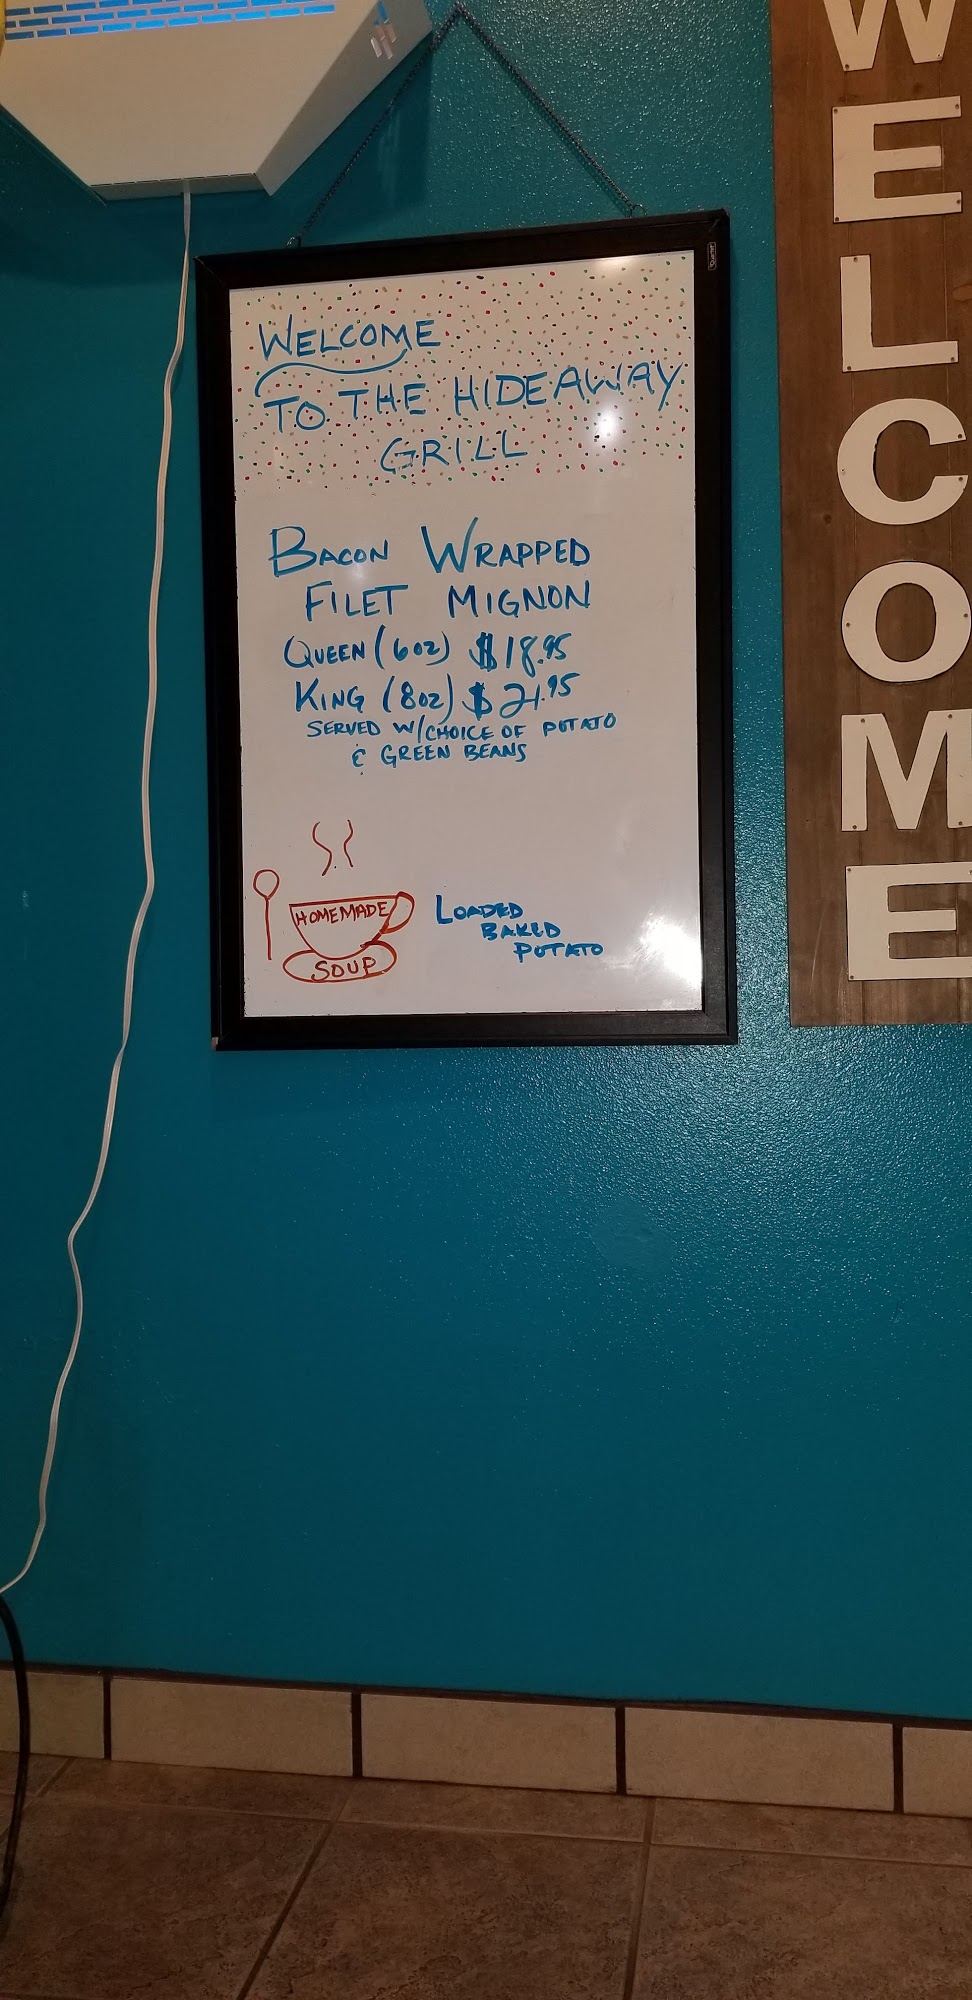 WELCOME
TO THE HIDEAWAY
GRILL
BACON WRAPPED
FILET MIGNON
QUEEN (6oz) $18.95
KING (8oz) $21.95
SERVED W/CHOICE OF POTATO
& GREEN BEANS
HOMEMADE
SOUP
LOADED
BAKED
POTATO
WELCOME